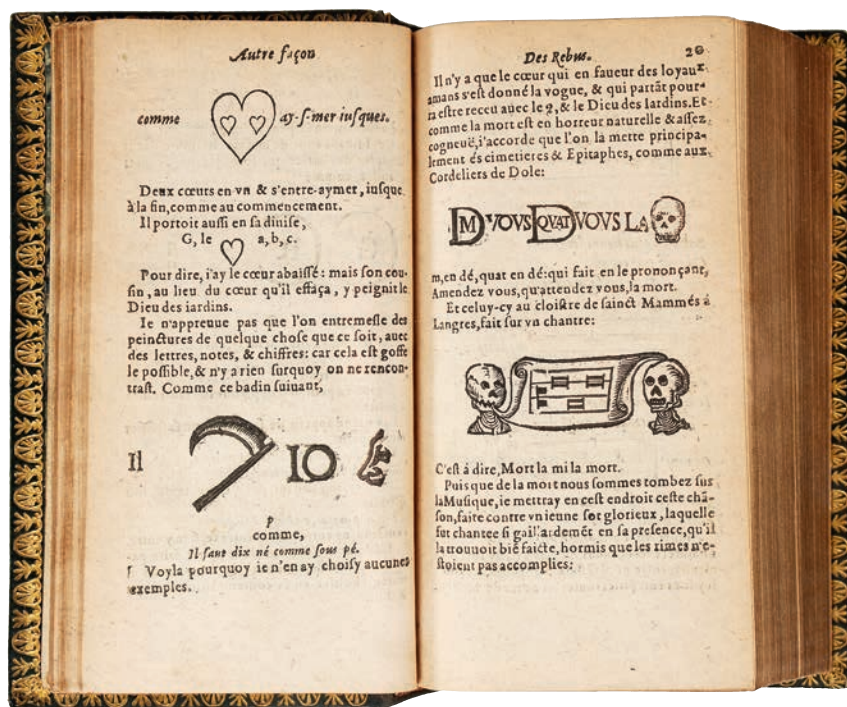 Autre façon
comme ay-ſ-mer iuſques.
Deux cœurs en vn & s'entre-aymer, iuſque
à la fin, comme au commencement.
Il portoit auſſi en ſa diuiſe,
G, le a, b, c.
Pour dire, i'ay le cœur abaiſſé: mais ſon cou-
ſin, au lieu du cœur qu'il effaça, y peignit le
Dieu des iardins.
Ie n'appreuue pas que l'on entremeſle des
peinctures de quelque choſe que ce ſoit, auec
des lettres, notes, & chiffres: car cela eſt goffe
le poſſible, & n'y a rien ſurquoy on ne rencon-
traſt. Comme ce badin ſuiuant,
Il IO
P
comme,
Il faut dix né comme ſous pé.
Voyla pourquoy ie n'en ay choiſy aucuns
exemples.
Des Rebus. 20
Il n'y a que le cœur qui en faueur des loyaux
amans s'eſt donné la vogue, & qui partāt pour-
ra eſtre receu auec le 9, & le Dieu des Iardins. Et
comme la mort eſt en horreur naturelle & aſſez
cogneuë, i'accorde que l'on la mette principa-
lement és cimetieres & Epitaphes, comme aux
Cordeliers de Dole:
DM VOVS DQVAT VOVS LA
m, en dé, quat en dé: qui fait en le prononçant,
Amendez vous, qu'attendez vous, la mort.
Et celuy-cy au cloiſtre de ſainct Mammés à
Langres, fait ſur vn chantre:
C'eſt à dire, Mort la mi la mort.
Puis que de la mort nous ſommes tombez ſur
la Muſique, ie mettray en ceſt endroit ceſte chā-
ſon, faite contre vn ieune ſot glorieux, laquelle
fut chantee ſi gail'ardemēt en ſa preſence, qu'il
la trouuoit biē faicte, hormis que les rimes n'e-
ſtoient pas accomplies: